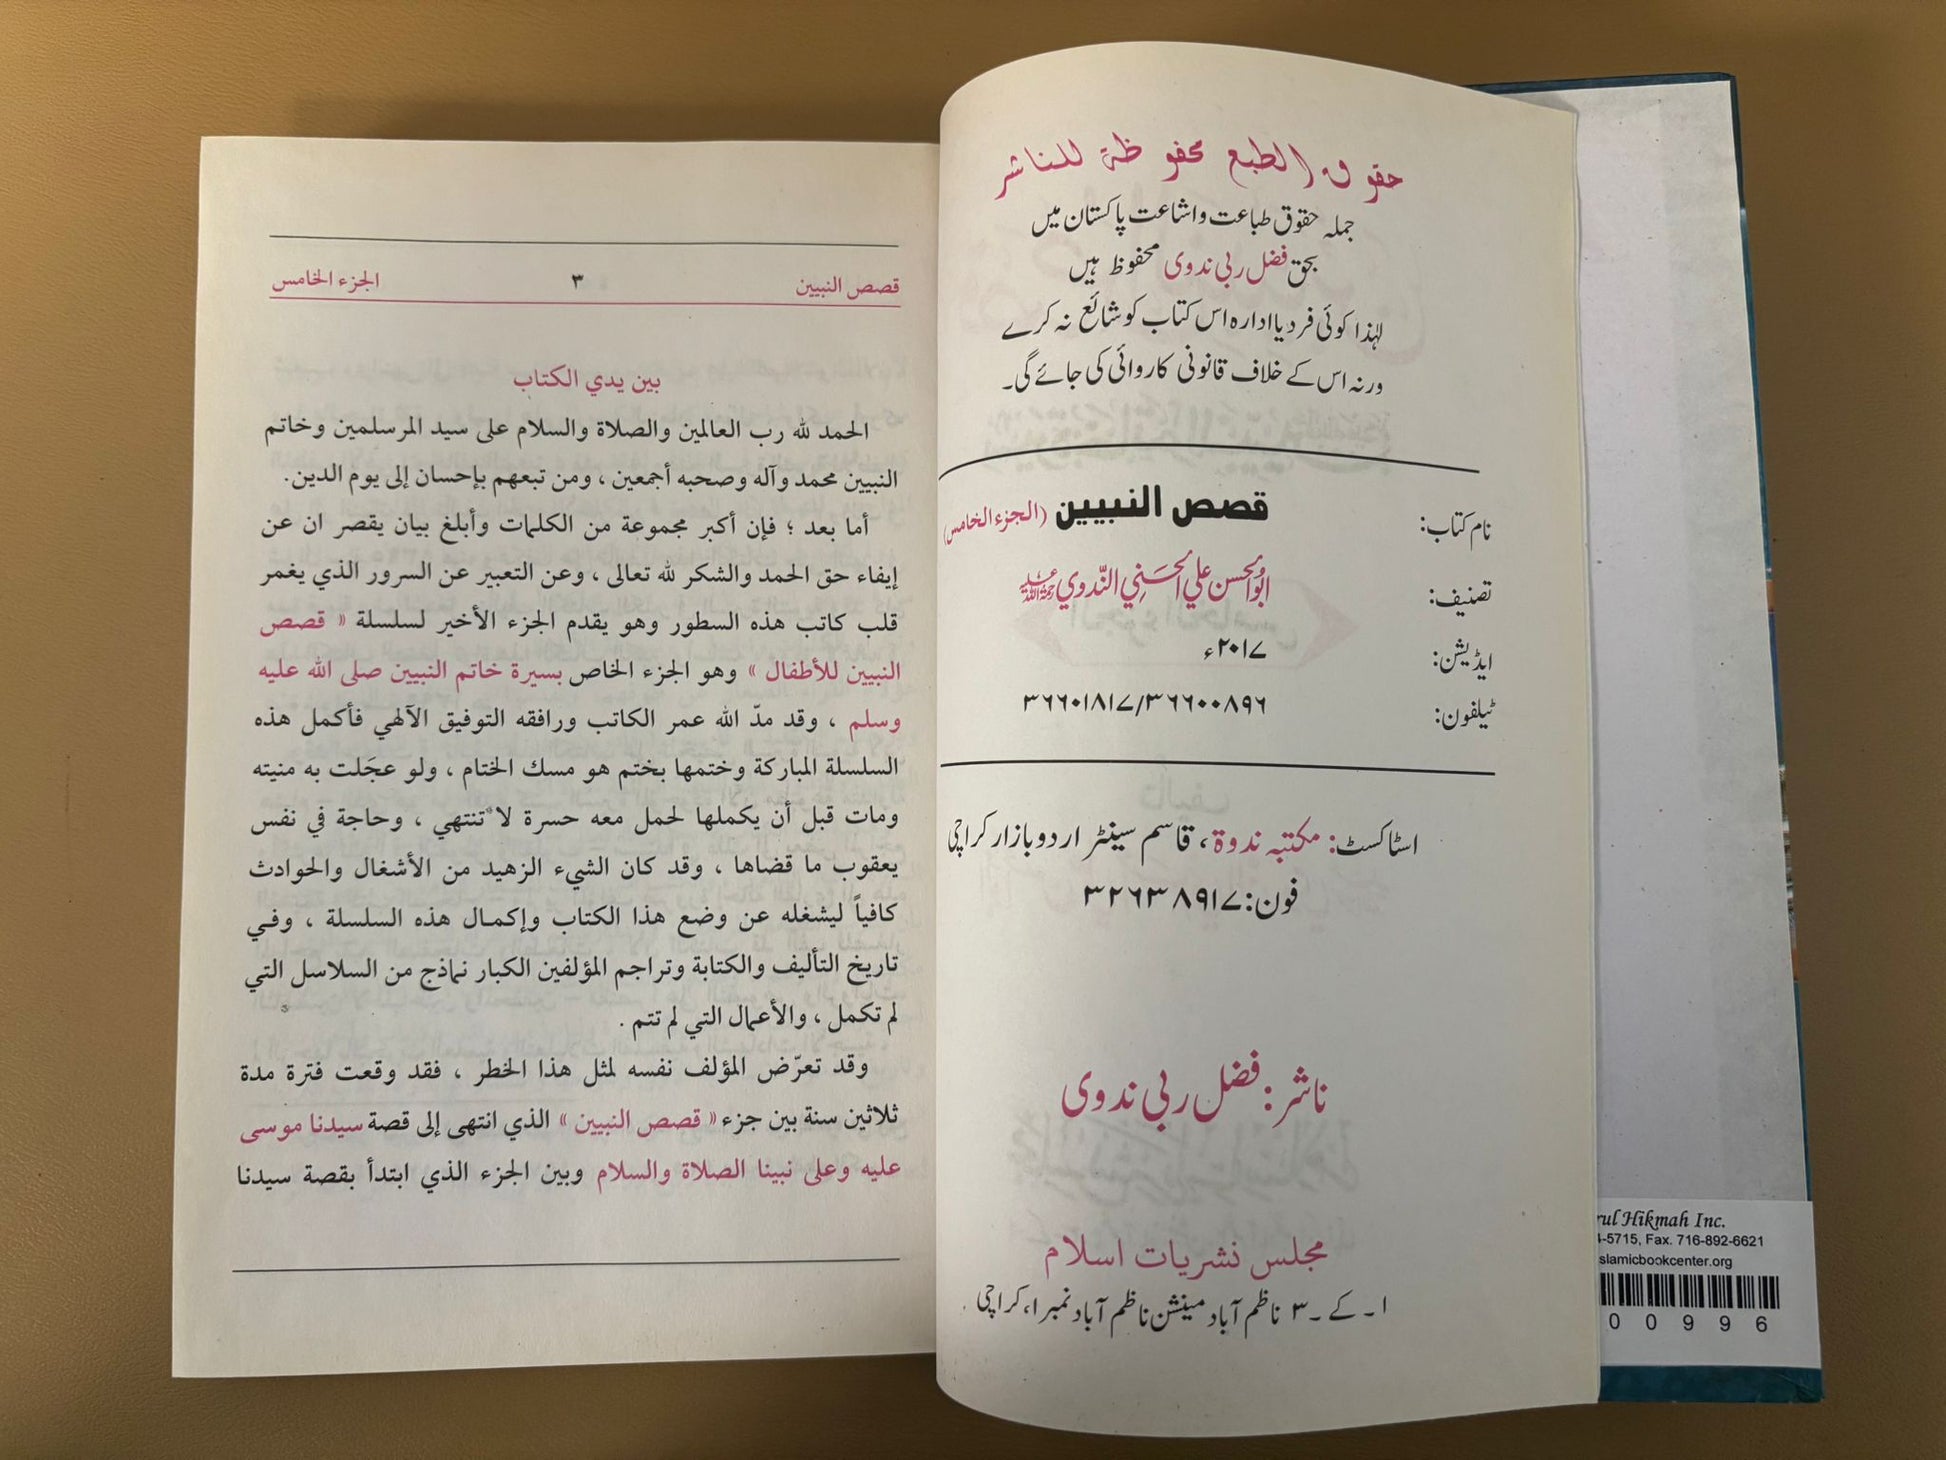 حقوق الطبع محفوظة للناشر
جملہ حقوق طباعت واشاعت پاکستان میں
بحق فضل ربی ندوی محفوظ ہیں
لہٰذا کوئی فرد یا ادارہ اس کتاب کو شائع نہ کرے
ورنہ اس کے خلاف قانونی کاروائی کی جائے گی۔
نام کتاب: قصص النبيين (الجزء الخامس)
تصنیف: ابوالحسن علي الحسني الندوي رحمۃ اللہ علیہ
ایڈیشن: ۲۰۱۷ء
ٹیلفون: ۳۶۶۰۱۸۱۷/۳۶۶۰۰۸۹۶
اسٹاکسٹ: مکتبہ ندوۃ، قاسم سینٹر اردو بازار کراچی
فون: ۳۲۶۳۸۹۱۷
ناشر: فضل ربی ندوی
مجلس نشریات اسلام
۱۔ کے ۔ ۳ ناظم آباد مینشن ناظم آباد نمبر ۱، کراچی
قصص النبيين ٣ الجزء الخامس
بين يدي الكتاب
الحمد لله رب العالمين والصلاة والسلام على سيد المرسلمين وخاتم
النبيين محمد وآله وصحبه أجمعين ، ومن تبعهم بإحسان إلى يوم الدين.
أما بعد ؛ فإن أكبر مجموعة من الكلمات وأبلغ بيان يقصر ان عن
إيفاء حق الحمد والشكر لله تعالى ، وعن التعبير عن السرور الذي يغمر
قلب كاتب هذه السطور وهو يقدم الجزء الأخير لسلسلة « قصص
النبيين للأطفال » وهو الجزء الخاص بسيرة خاتم النبيين صلى الله عليه
وسلم ، وقد مدّ الله عمر الكاتب ورافقه التوفيق الآلهي فأكمل هذه
السلسلة المباركة وختمها بختم هو مسك الختام ، ولو عجَلت به منيته
ومات قبل أن يكملها لحمل معه حسرة لا تنتهي ، وحاجة في نفس
يعقوب ما قضاها ، وقد كان الشيء الزهيد من الأشغال والحوادث
كافياً ليشغله عن وضع هذا الكتاب وإكمال هذه السلسلة ، وفي
تاريخ التأليف والكتابة وتراجم المؤلفين الكبار نماذج من السلاسل التي
لم تكمل ، والأعمال التي لم تتم .
وقد تعرّض المؤلف نفسه لمثل هذا الخطر ، فقد وقعت فترة مدة
ثلاثين سنة بين جزء « قصص النبيين » الذي انتهى إلى قصة سيدنا موسى
عليه وعلى نبينا الصلاة والسلام وبين الجزء الذي ابتدأ بقصة سيدنا
rul Hikmah Inc.
4-5715, Fax. 716-892-6621
slamicbookcenter.org
0 0 9 9 6